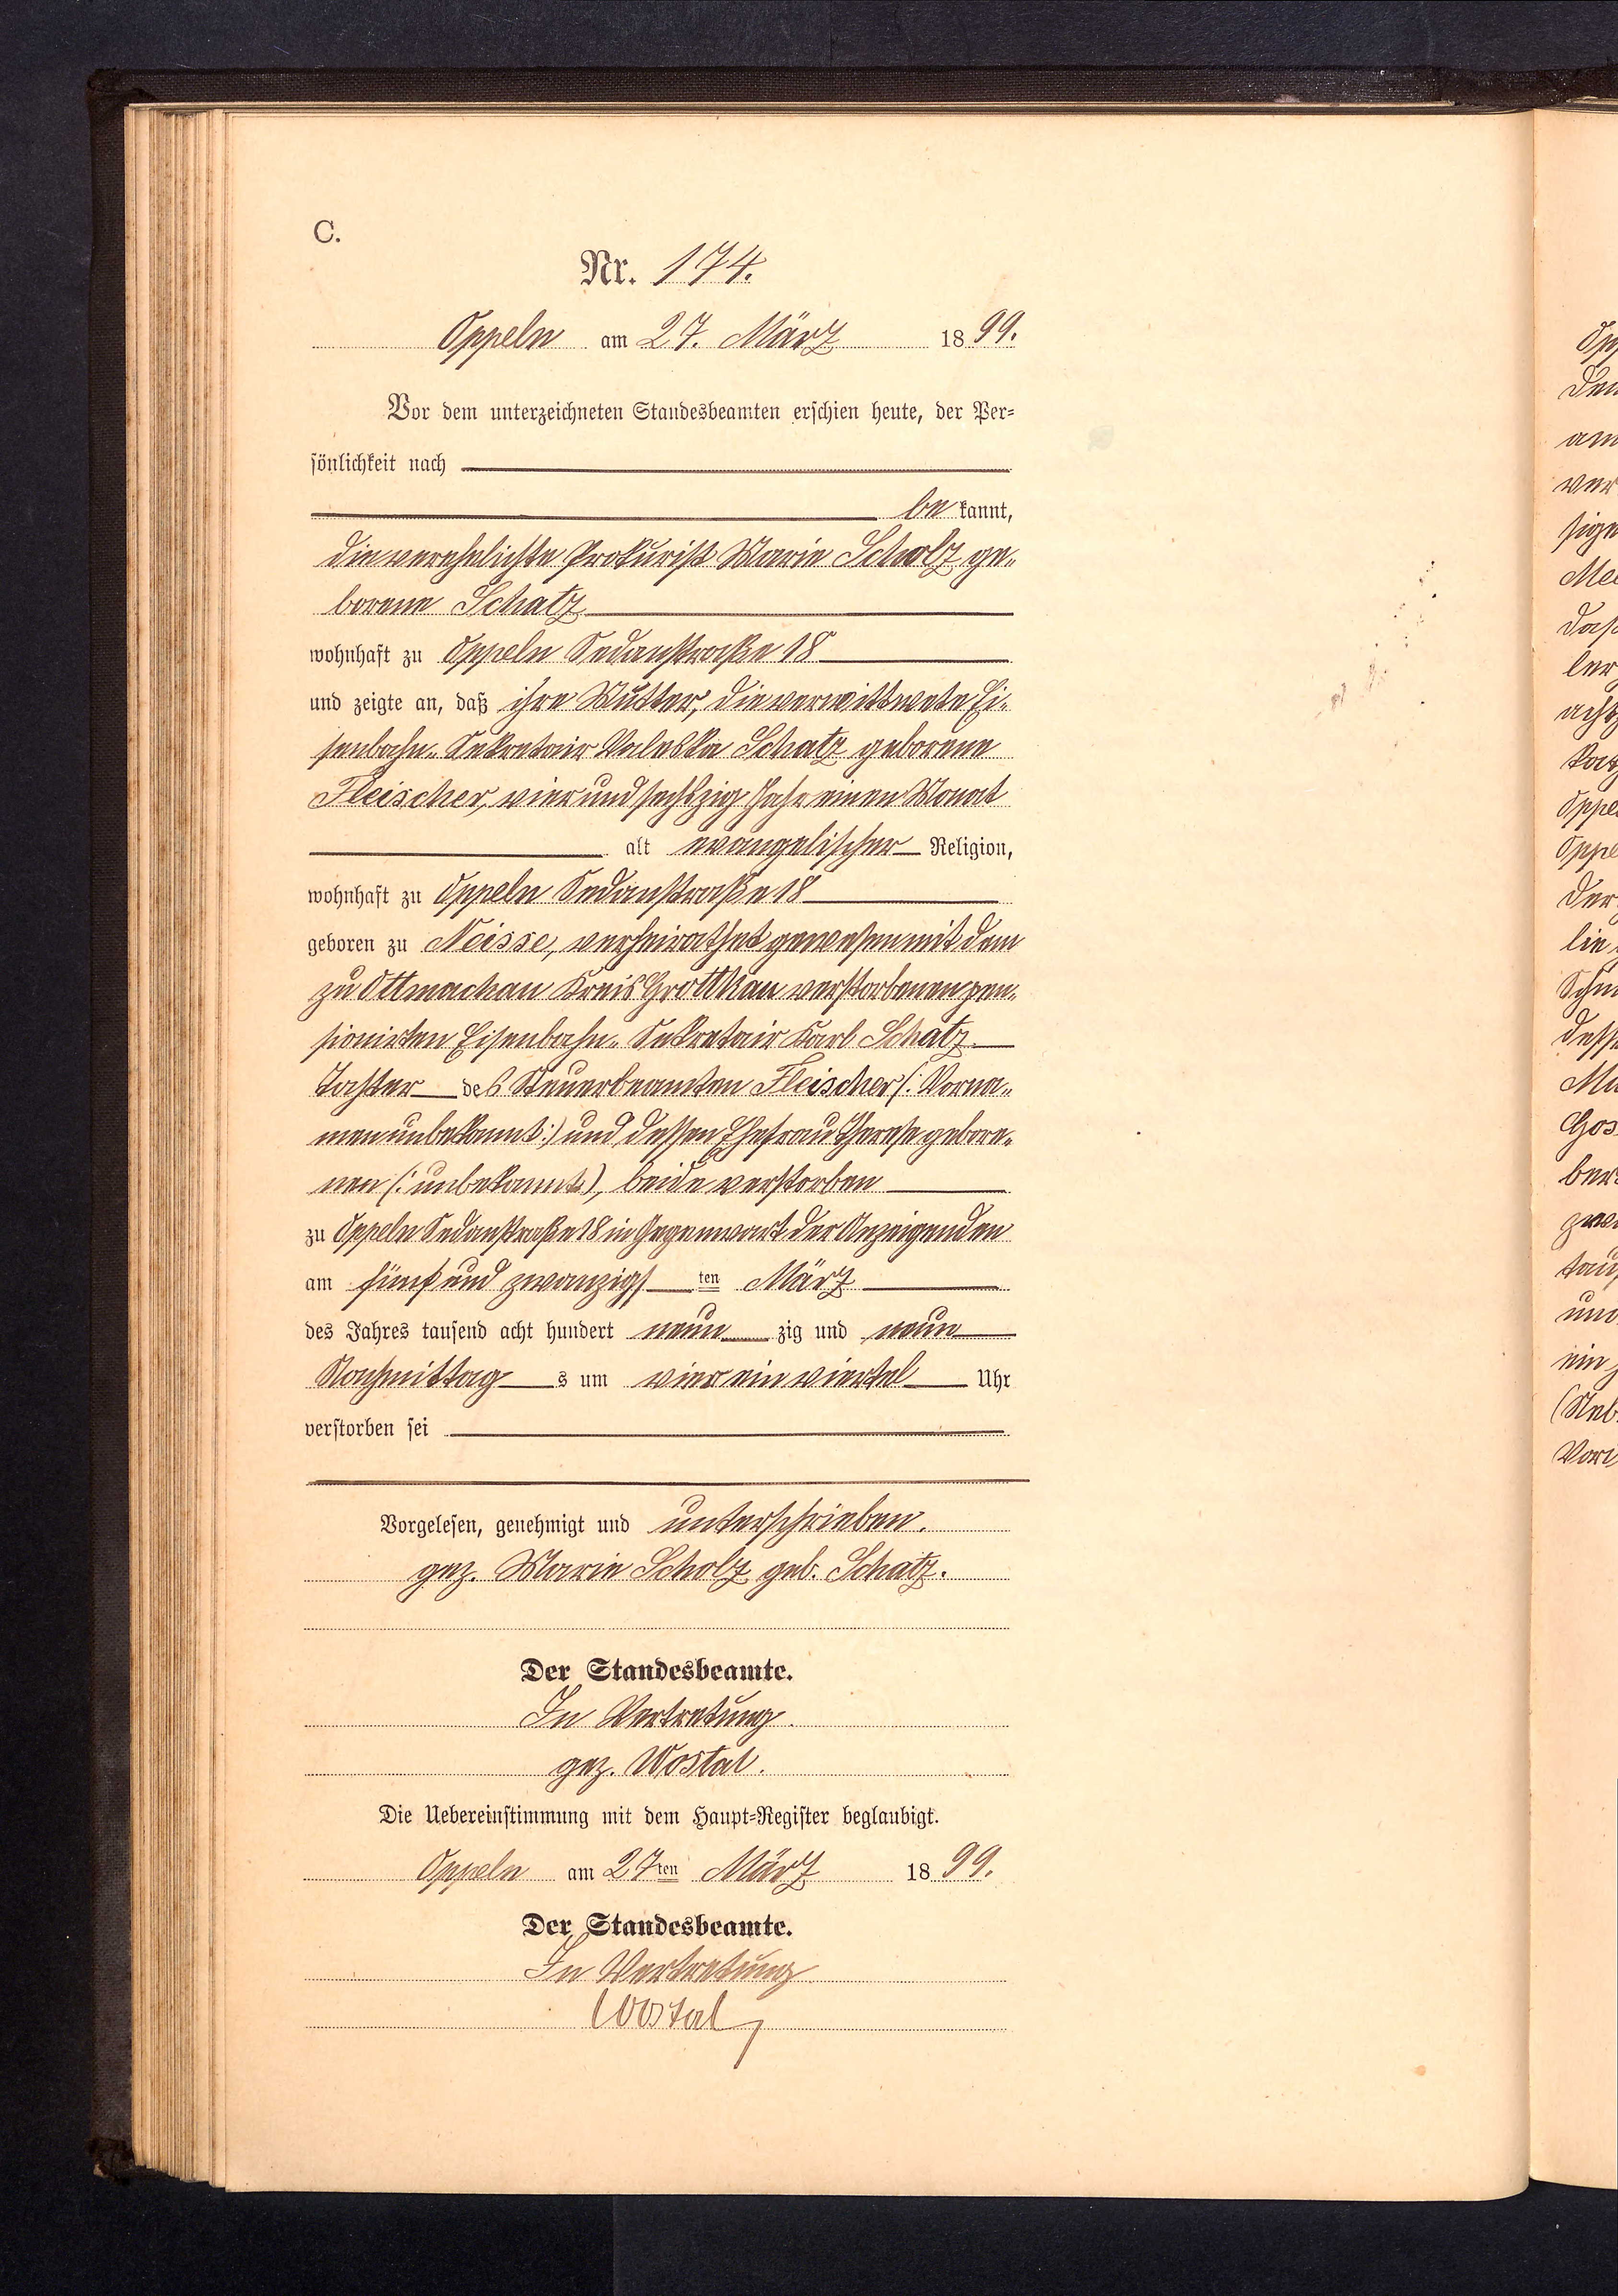 C.
Nr. 174.
Oppeln am 27. März 1899.
Vor dem unterzeichneten Standesbeamten erschien heute, der Per-
sönlichkeit nach
be kannt,
die verehelichte Prokurist Marie Scholz ge-
borene Schatz
wohnhaft zu Oppeln Sedanstraße 18
und zeigte an, daß ihre Mutter, die verwittwete Ei-
senbahn-Sekretair Valeska Schatz geborene
Fleischer, vier und sechszig Jahr einen Monat
alt evangelischer Religion,
wohnhaft zu Oppeln Sedanstraße 18
geboren zu Neisse, verheirathet gewesen mit dem
zu Ottmachau Kreis Grottkau verstorbenen pen-
sionirten Eisenbahn-Sekretair Karl Schatz
Tochter des Steuerbeamten Fleischer (: Vorna-
men unbekannt :) und dessen Ehefrau Therese gebore-
nen (: unbekannt :), beide verstorben
zu Oppeln Sedanstraße 18 in Gegenwart der Anzeigenden
am fünf und zwanzigs ten März
des Jahres tausend acht hundert neun zig und neun
Nachmittag s um vier ein viertel Uhr
verstorben sei
Vorgelesen, genehmigt und unterschrieben.
gez. Marie Scholz geb. Schatz.
Der Standesbeamte.
In Vertretung
gez. Wostal.
Die Uebereinstimmung mit dem Haupt-Register beglaubigt.
Oppeln am 27ten März 1899.
Der Standesbeamte.
In Vertretung
Wostal